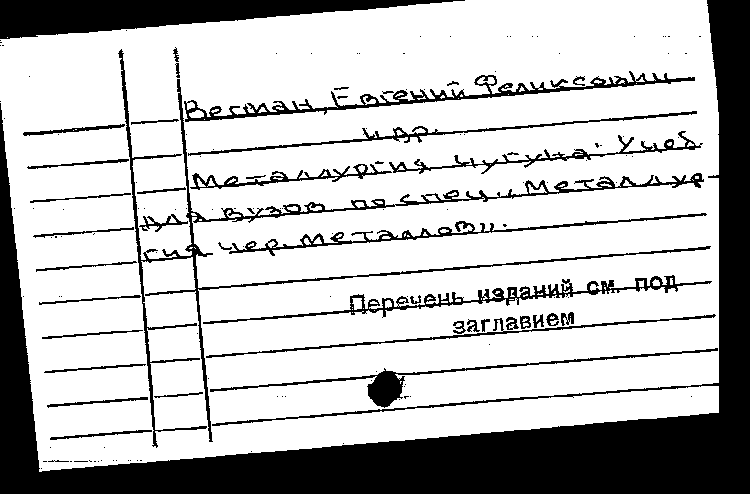 Вегман, Евгений Феликсович
и др.
Металлургия чугуна: Учеб
для вузов по спец. „Металлур-
гия чер. металлов".
Перечень изданий см. под
заглавием